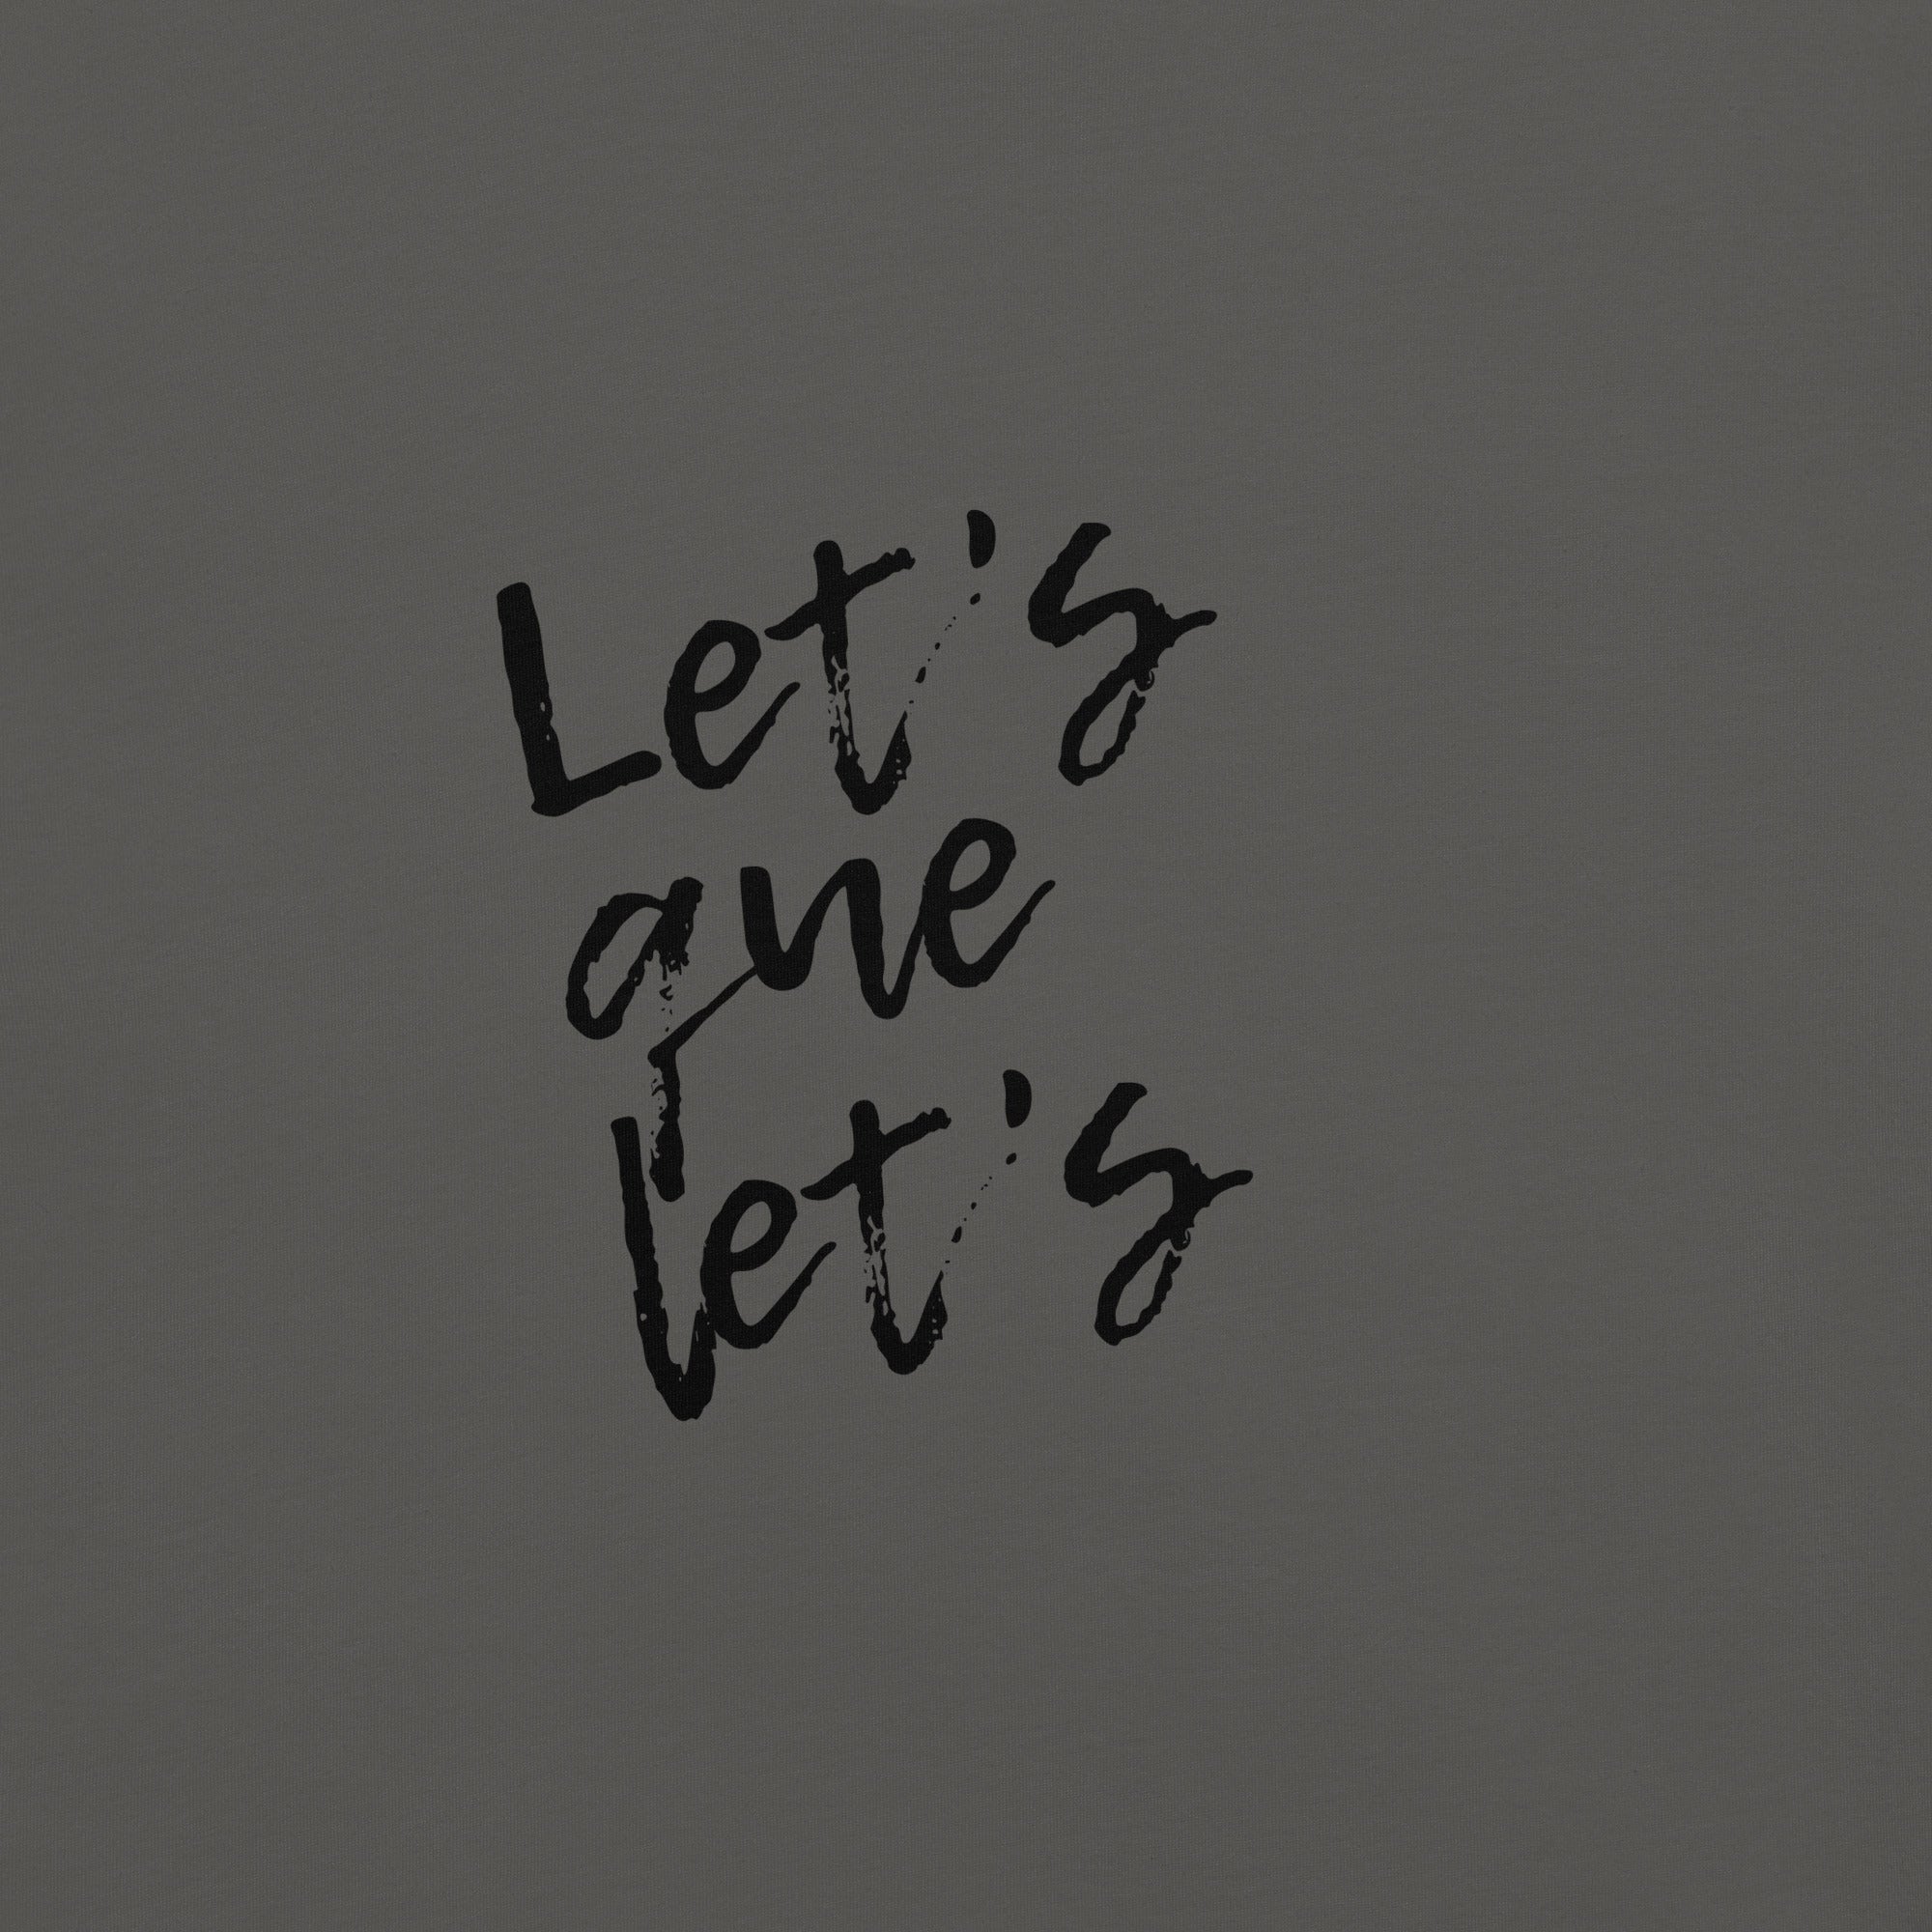 Let's
que
let's